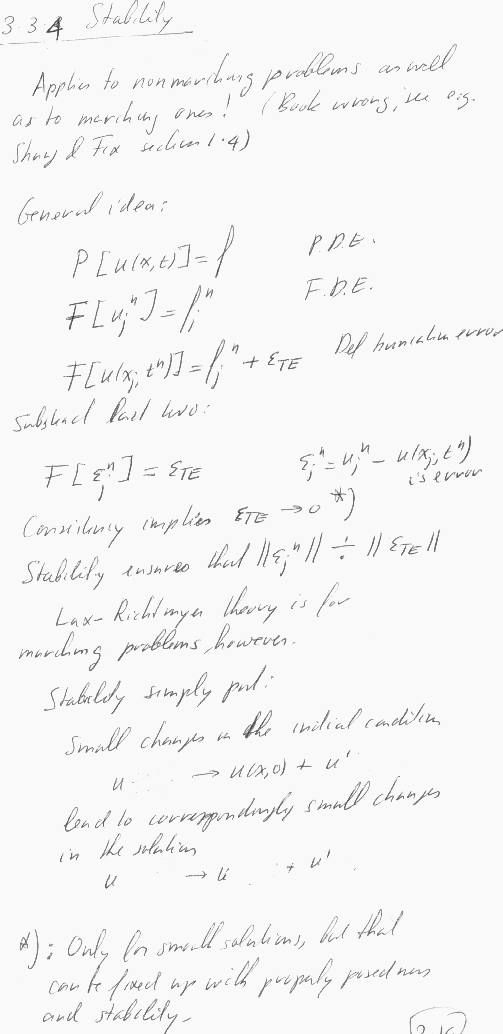 3.3.4 Stability
Applies to nonmarching problems as well
as to marching ones! (Book wrong, see e.g.
Strang & Fix section 1.4)
General idea:
P[u(x,t)] = f P.D.E.
F[u_j^n] = f_j^n F.D.E.
F[u(x_j, t^n)] = f_j^n + ε_TE Def truncation error
Substract last two:
F[ε_j^n] = ε_TE ε_j^n = u_j^n - u(x_j, t^n)
is error
Consistency implies ε_TE → 0 *)
Stability ensures that ||ε_j^n|| ÷ ||ε_TE||
Lax-Richtmyer theory is for
marching problems, however.
Stability simply put:
Small changes in the initial condition
u → u(x,0) + u'
lead to correspondingly small changes
in the solution
u → u + u'
*): Only for small solutions, but that
can be fixed up with properly posedness
and stability.